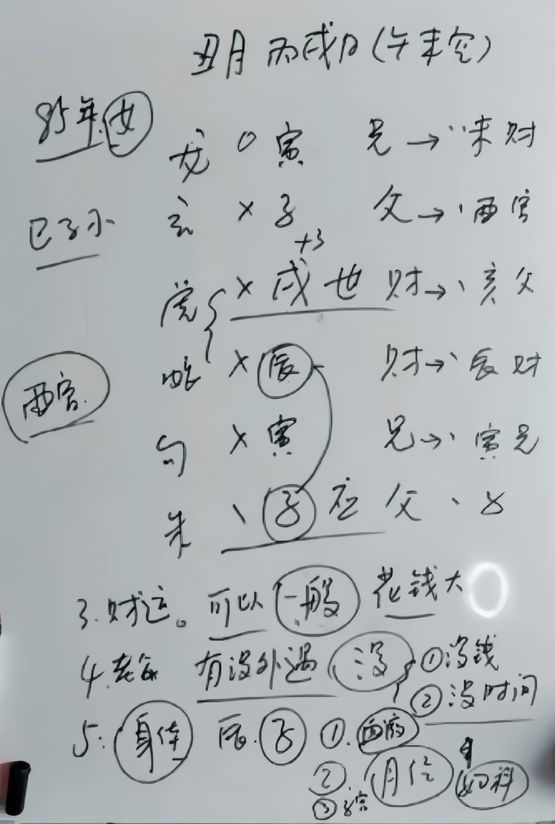 丑月 丙戌日(午未空)
85年 女
龙 O 寅 兄→、、未财
巳子水 玄 × 子 父→、酉官
+3
虎 × 戌 世 财→、亥父
蛇 × 辰 财→、辰财
酉官
勾 × 寅 兄→、寅兄
朱 、 子 应 父、
3.财运。可以 一般 花钱大
4.老公 有没外遇 没 ①没钱
②没时间
5.身体 辰.子 ①.血液
② 月经 妇科
③子宫